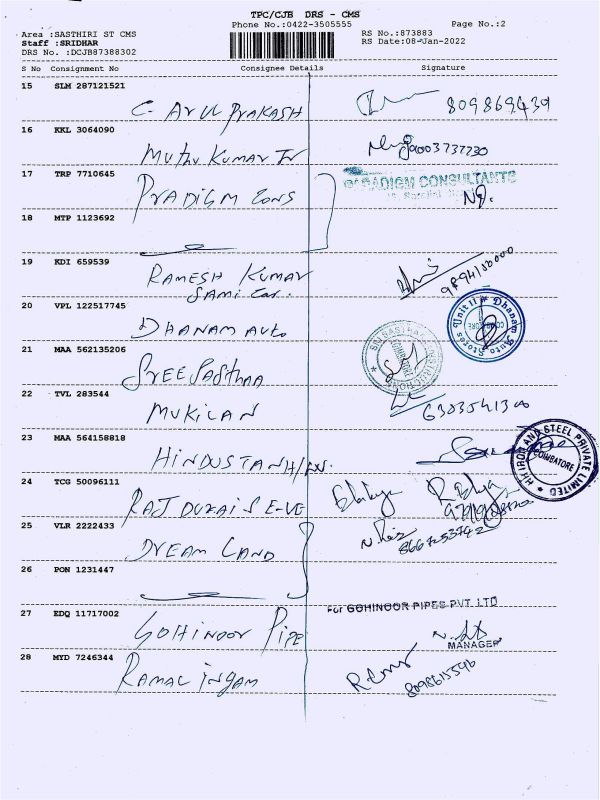 TPC/CJB DRS - CMS
Phone No.:0422-3505555 Page No.:2
Area :SASTHIRI ST CMS RS No.:873883
Staff :SRIDHAR RS Date:08-Jan-2022
DRS No. :DCJB87388302
S No Consignment No Consignee Details Signature
15 SLM 287121521
C. Arul PRAKASH 809869439
16 KKL 3064090
Muthu Kumar Tr 9003737230
17 TRP 7710645
PRADIGM CONS PARADIGM CONSULTANTS
18 MTP 1123692
19 KDI 659539
RAMESH KUMAR 9894150000
SAMI Car.
20 VPL 122517745
DHANAM Auto Dhanam Auto Stores Unit II COIMBATORE
21 MAA 562135206
SREE SASTHAA COIMBATORE
22 TVL 283544
MUKILAN 6303541300
23 MAA 564158818
HINDUSTAN H/W. HI IRON AND STEEL PRIVATE LIMITED COIMBATORE
24 TCG 50096111
RAJ DURAI S E-VE
25 VLR 2222433
DREAM LAND 8667253742
26 PON 1231447
27 EDQ 11717002
GOHINOOR PIPE For GOHINOOR PIPES PVT. LTD
MANAGER
28 MYD 7246344
RAMALINGAM 8098615596